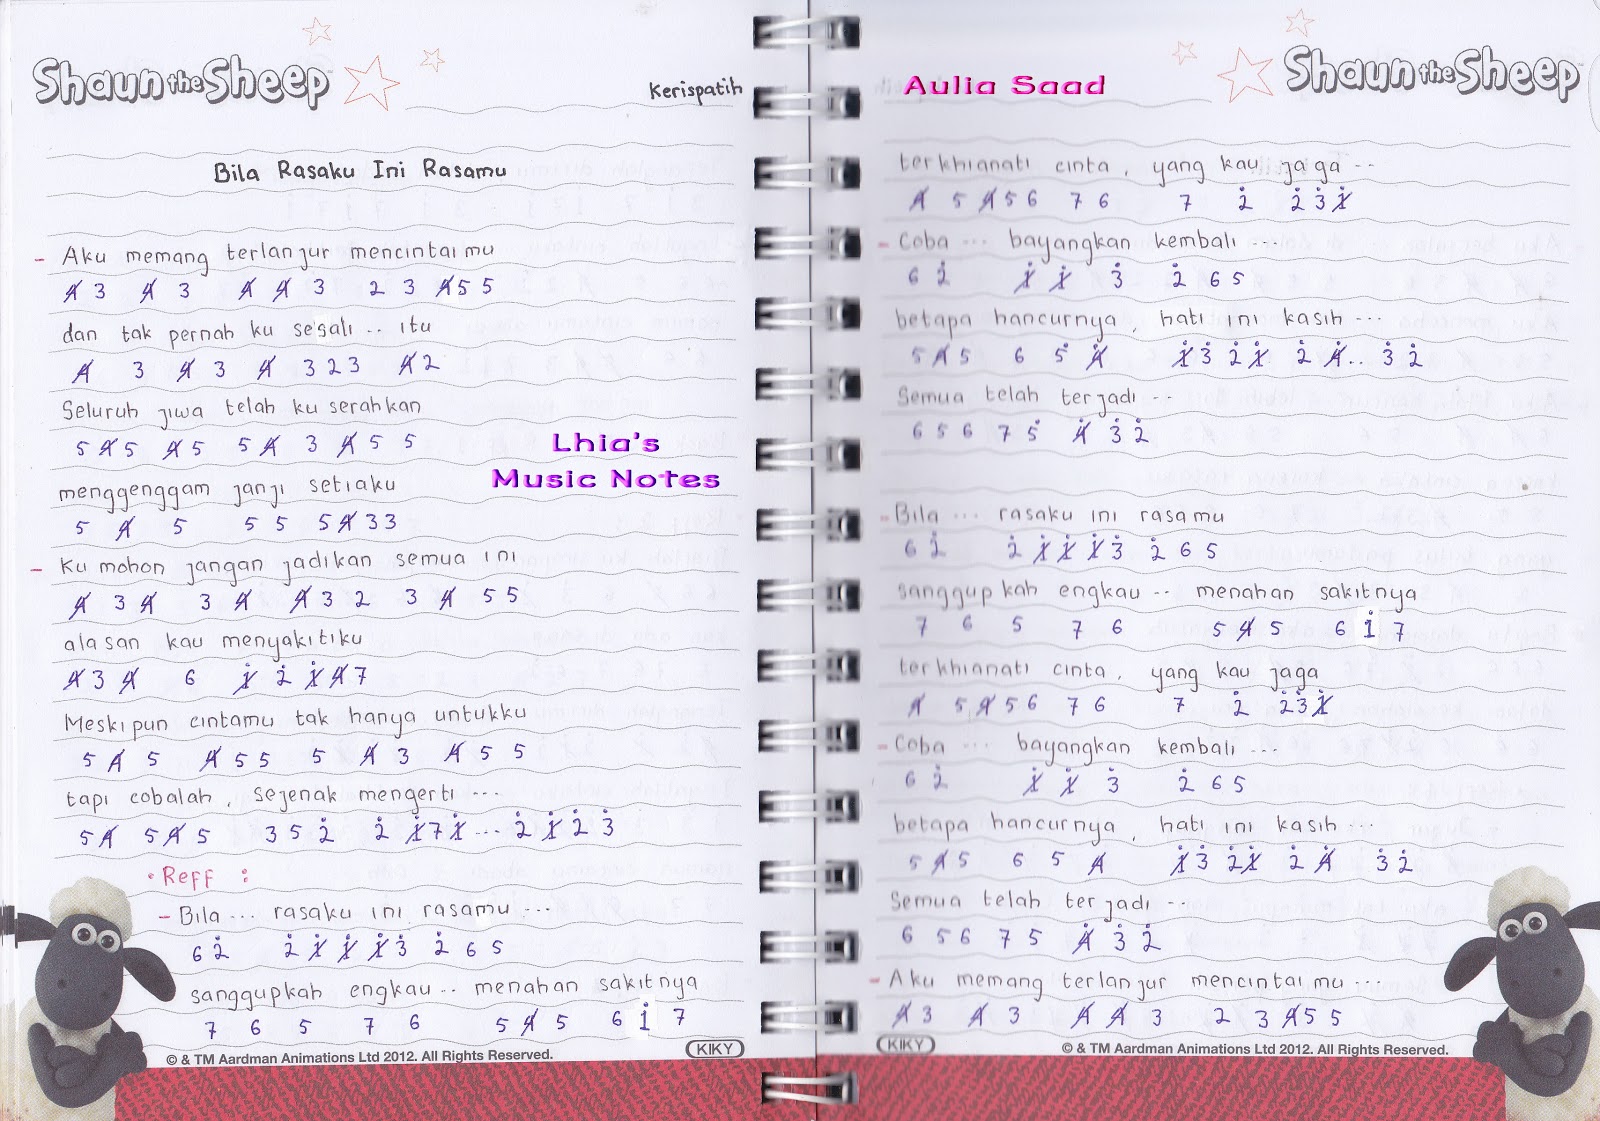 Shaun the Sheep
Kerispatih
Bila Rasaku Ini Rasamu
- Aku memang terlanjur mencintaimu
4̸ 3 4̸ 3 4̸ 4̸ 3 2 3 4̸ 5 5
dan tak pernah ku sesali .. itu
4̸ 3 4̸ 3 4̸ 3 2 3 4̸ 2
Seluruh jiwa telah ku serahkan
5 4̸ 5 4̸ 5 5 4̸ 3 4̸ 5 5
Lhia's
Music Notes
menggenggam janji setiaku
5 4̸ 5 5 5 5 4̸ 3 3
- Ku mohon jangan jadikan semua ini
4̸ 3 4̸ 3 4̸ 4̸ 3 2 3 4̸ 5 5
alasan kau menyakitiku
4̸ 3 4̸ 6 1̸̇ 2̇ 1̸̇ 4̸ 7
Meskipun cintamu tak hanya untukku
5 4̸ 5 4̸ 5 5 5 4̸ 3 4̸ 5 5
tapi cobalah, sejenak mengerti ...
5 4̸ 5 4̸ 5 3 5 2̇ 2̇ 1̸̇ 7 1̸̇ ... 2̇ 1̸̇ 2̇ 3̇
• Reff :
- Bila ... rasaku ini rasamu ...
6 2̇ 2̇ 1̸̇ 1̸̇ 1̸̇ 3̇ 2̇ 6 5
sanggupkah engkau .. menahan sakitnya
7 6 5 7 6 5 4̸ 5 6 1̇ 7
© & TM Aardman Animations Ltd 2012. All Rights Reserved.
KIKY
Aulia Saad
Shaun the Sheep
terkhianati cinta, yang kau jaga ..
4̸ 5 4̸ 5 6 7 6 7 2̇ 2̇ 3̇ 1̸̇
- Coba ... bayangkan kembali ...
6 2̇ 1̸̇ 1̸̇ 3̇ 2̇ 6 5
betapa hancurnya, hati ini kasih ...
5 4̸ 5 6 5̇ 4̸̇ 1̸̇ 3̇ 2̇ 1̸̇ 2̇ 4̸̇ .. 3̇ 2̇
Semua telah terjadi ..
6 5 6 7 5̇ 4̸̇ 3̇ 2̇
- Bila ... rasaku ini rasamu
6 2̇ 2̇ 1̸̇ 1̸̇ 1̸̇ 3̇ 2̇ 6 5
sanggupkah engkau .. menahan sakitnya
7 6 5 7 6 5 4̸ 5 6 1̇ 7
terkhianati cinta, yang kau jaga
4̸ 5 4̸ 5 6 7 6 7 2̇ 2̇ 3̇ 1̸̇
- Coba ... bayangkan kembali ...
6 2̇ 1̸̇ 1̸̇ 3̇ 2̇ 6 5
betapa hancurnya, hati ini kasih ...
5 4̸ 5 6 5 4̸ 1̸̇ 3̇ 2̇ 1̸̇ 2̇ 4̸̇ 3̇ 2̇
Semua telah terjadi ..
6 5 6 7 5 4̸̇ 3̇ 2̇
- Aku memang terlanjur mencintaimu ...
4̸ 3 4̸ 3 4̸ 4̸ 3 2 3 4̸ 5 5
KIKY
© & TM Aardman Animations Ltd 2012. All Rights Reserved.